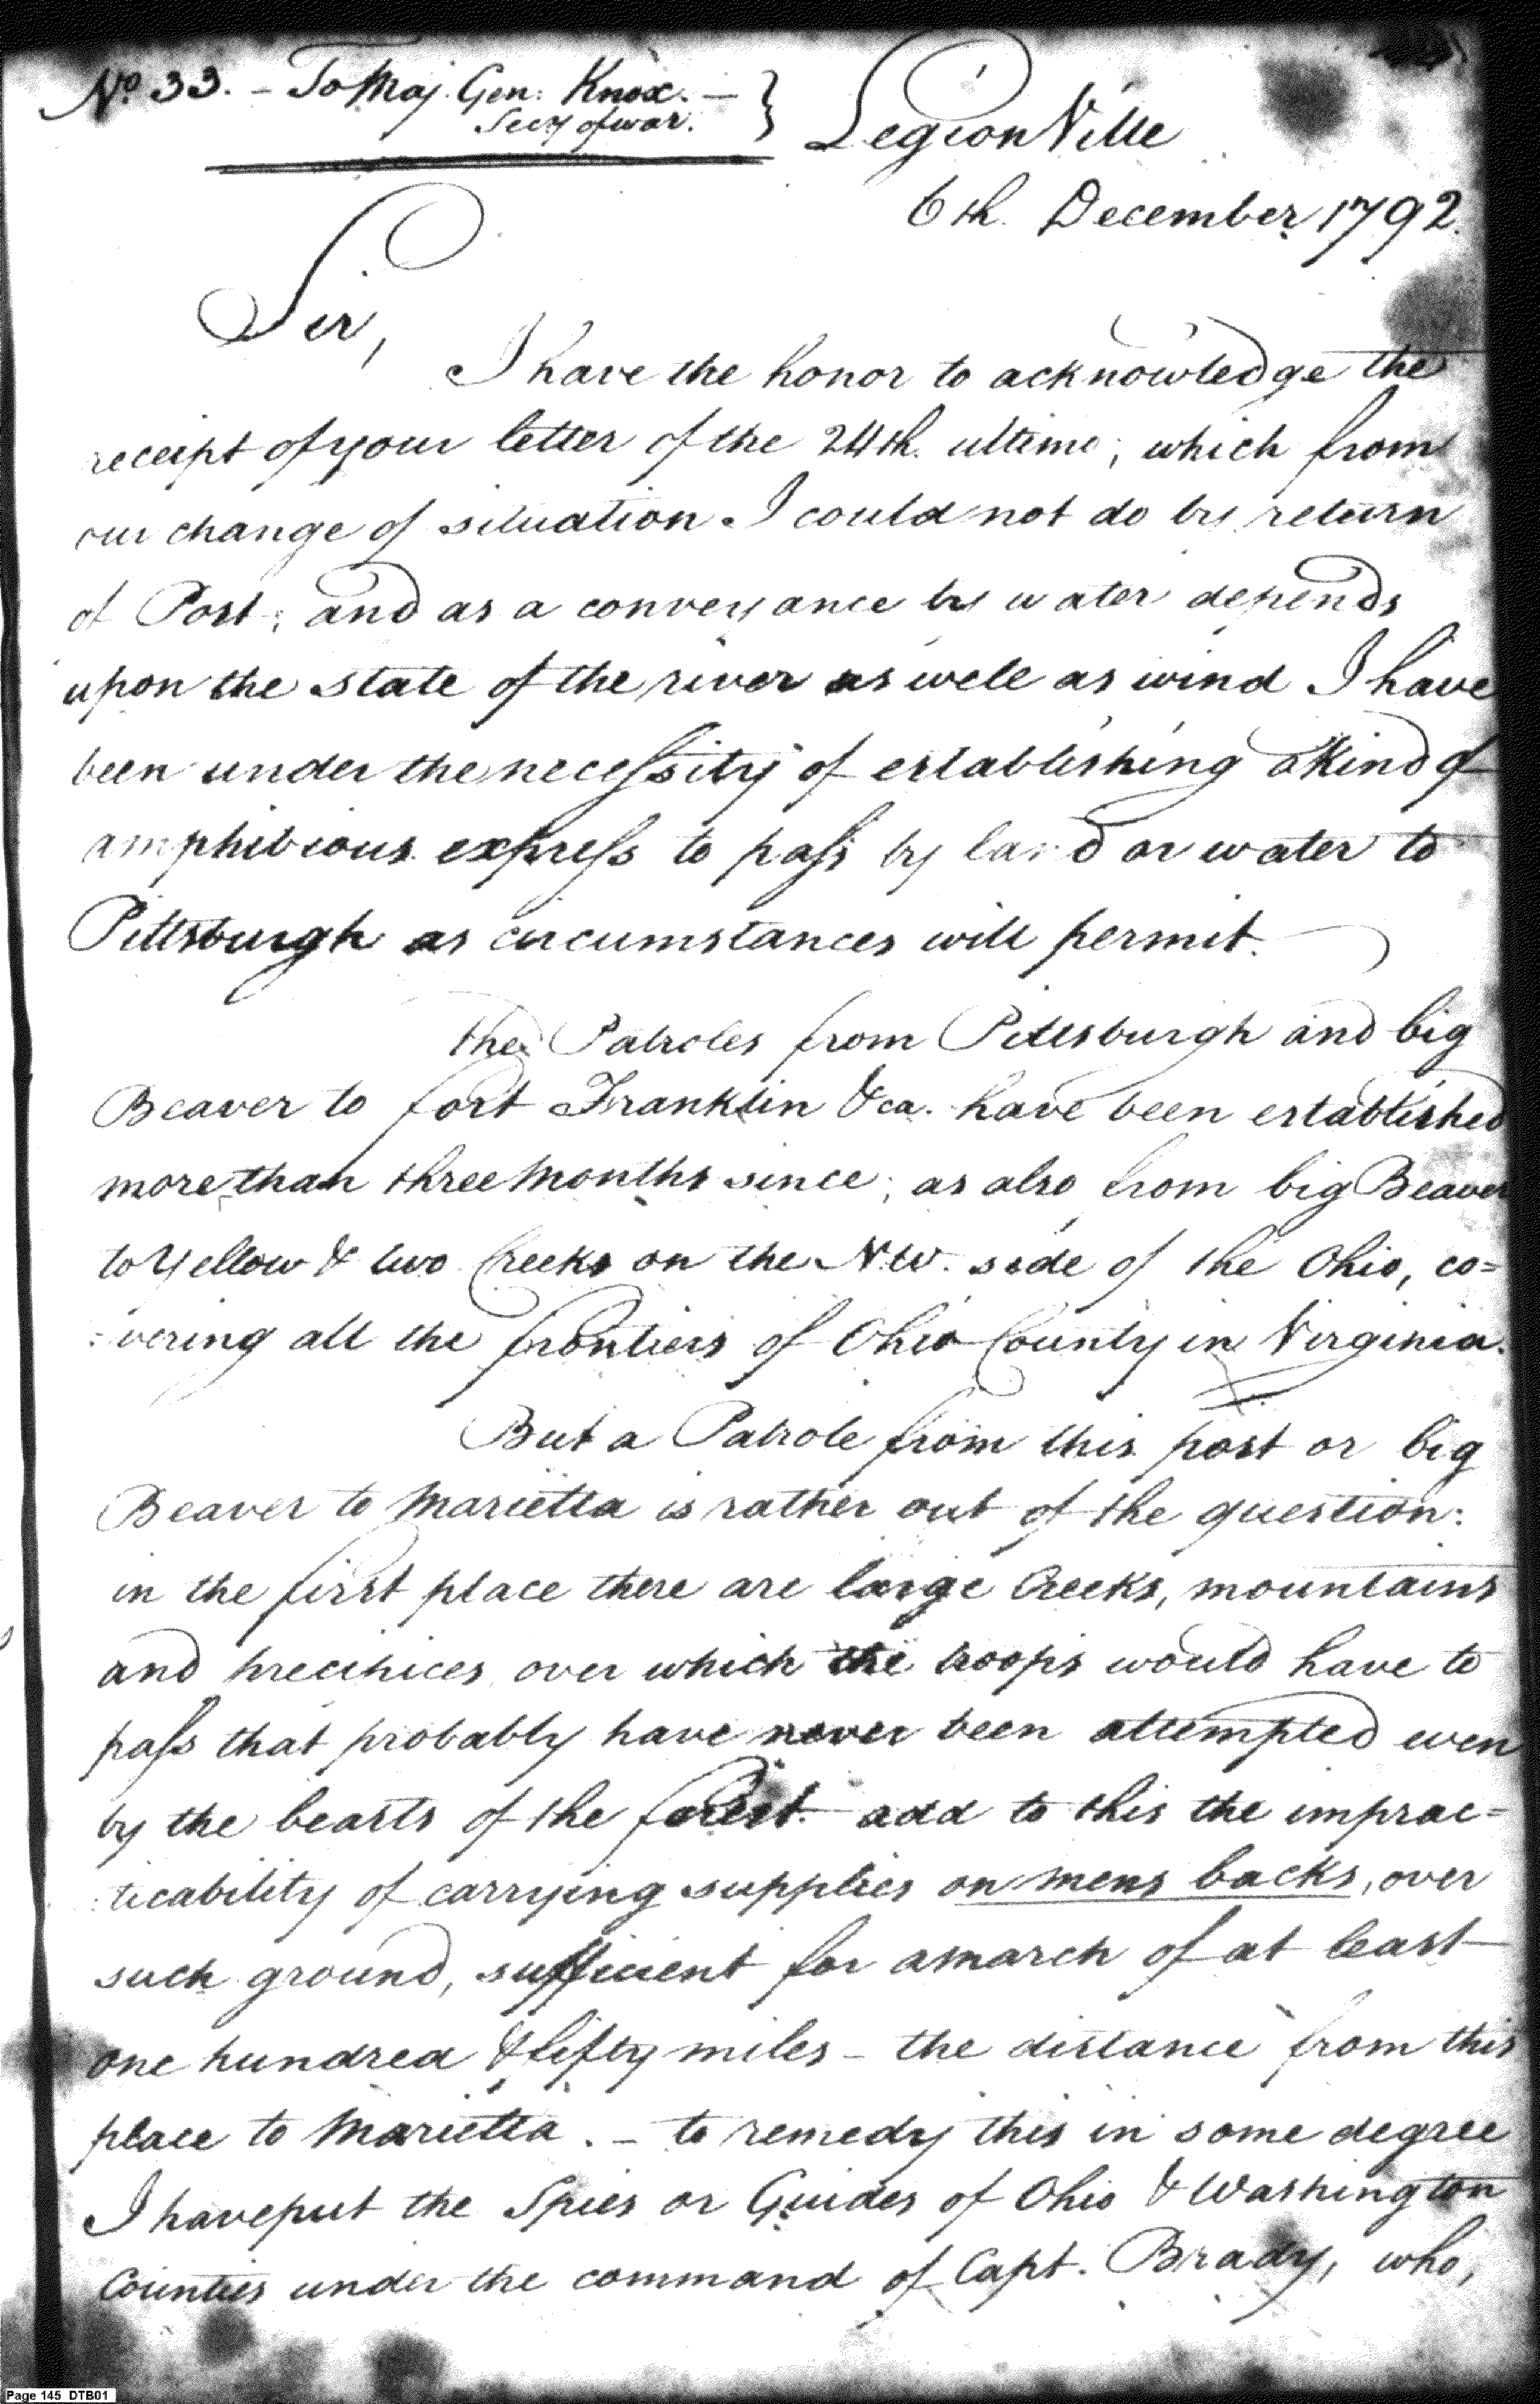 No. 33. - To Maj. Gen: Knox. -
Secy of war.
LegionVille
6th. December 1792.
Sir,
I have the honor to acknowledge the
receipt of your letter of the 24th. ultimo; which from
our change of situation I could not do by return
of Post; and as a conveyance by water depends
upon the state of the river as well as wind I have
been under the necessity of establishing a kind of
amphibious express to pass by land or water to
Pittsburgh as circumstances will permit.
the Patroles from Pittsburgh and big
Beaver to fort Franklin &ca. have been established
more than three months since; as also from big Beaver
to Yellow & two Creeks on the N.W. side of the Ohio, co=
:vering all the frontiers of Ohio County in Virginia.
But a Patrole from this post or big
Beaver to Marietta is rather out of the question:
in the first place there are large Creeks, mountains
and precipices over which the troops would have to
pass that probably have never been attempted even
by the beasts of the forest. add to this the imprac=
:ticability of carrying supplies on mens backs, over
such ground, sufficient for a march of at least
one hundred & fifty miles - the distance from this
place to Marietta. - to remedy this in some degree
I have put the Spies or Guides of Ohio & Washington
Counties under the command of Capt. Brady, who,
Page 145 DTB01